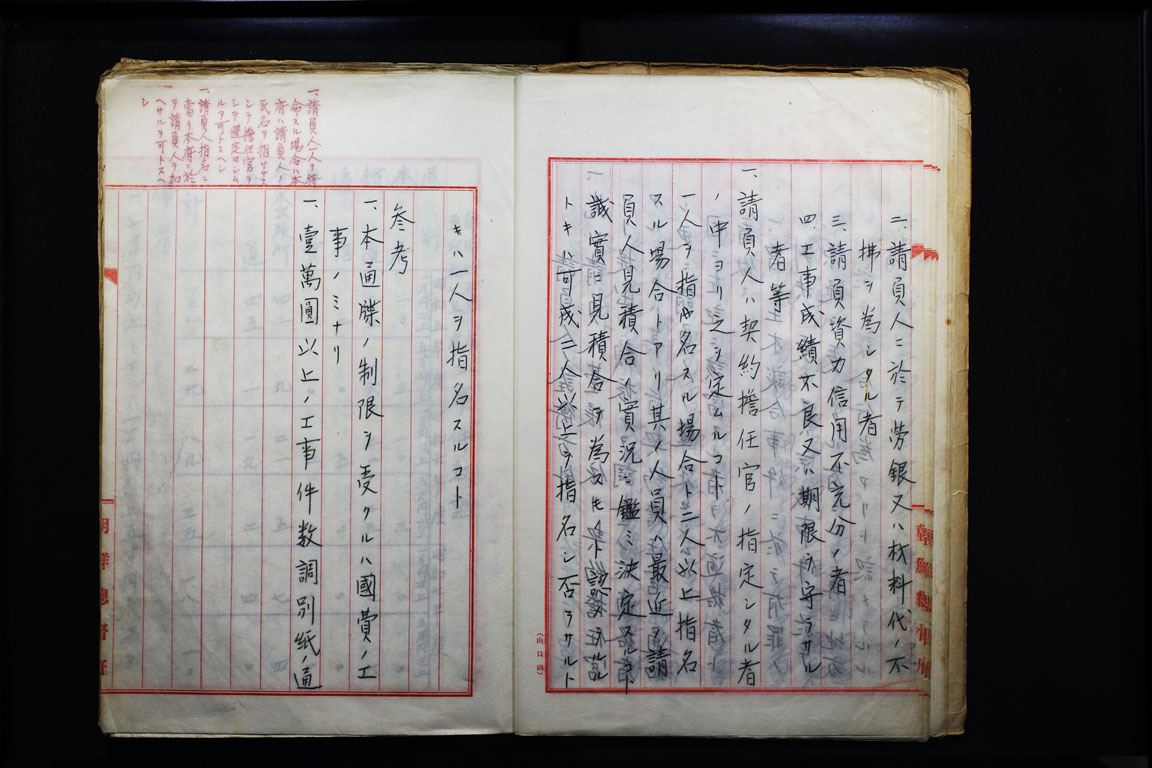 二、請負人ニ於テ労銀又ハ材料代ノ不
拂ヲ為シタル者
三、請負資力信用不充分ノ者
四、工事成績不良又ハ期限ヲ守ラサル
者等
一、請負人ハ契約擔任官ノ指定シタル者
ノ中ヨリ之ヲ定ムルコト
一人ヲ指名スル場合ト二人以上指名
スル場合トアリ其ノ人員ハ最近ノ請
負人見積合ノ實况ニ鑑ミ決定スルコト
誠實見積合ヲ為スモノト認メラルル
トキハ可成二人以上ヲ指名シ否ラサルト
(山口納)
朝鮮總督府
一、請負人一人ヲ特
命スル場合ハ本
府ハ請負人ノ
氏名ヲ指サス
シテ擔任官ヲ
シテ選定セシム
ルヲ可トスヘシ
一、請負人指名ニ
當リ本府ニ於
テ請負人ヲ加
ヘサルヲ可トスヘ
シ
キハ一人ヲ指名スルコト
参考
一、本通牒ノ制限ヲ受クルハ國費ノ工
事ノミナリ
一、壹萬圓以上ノ工事件数調別紙ノ通
朝鮮總督府